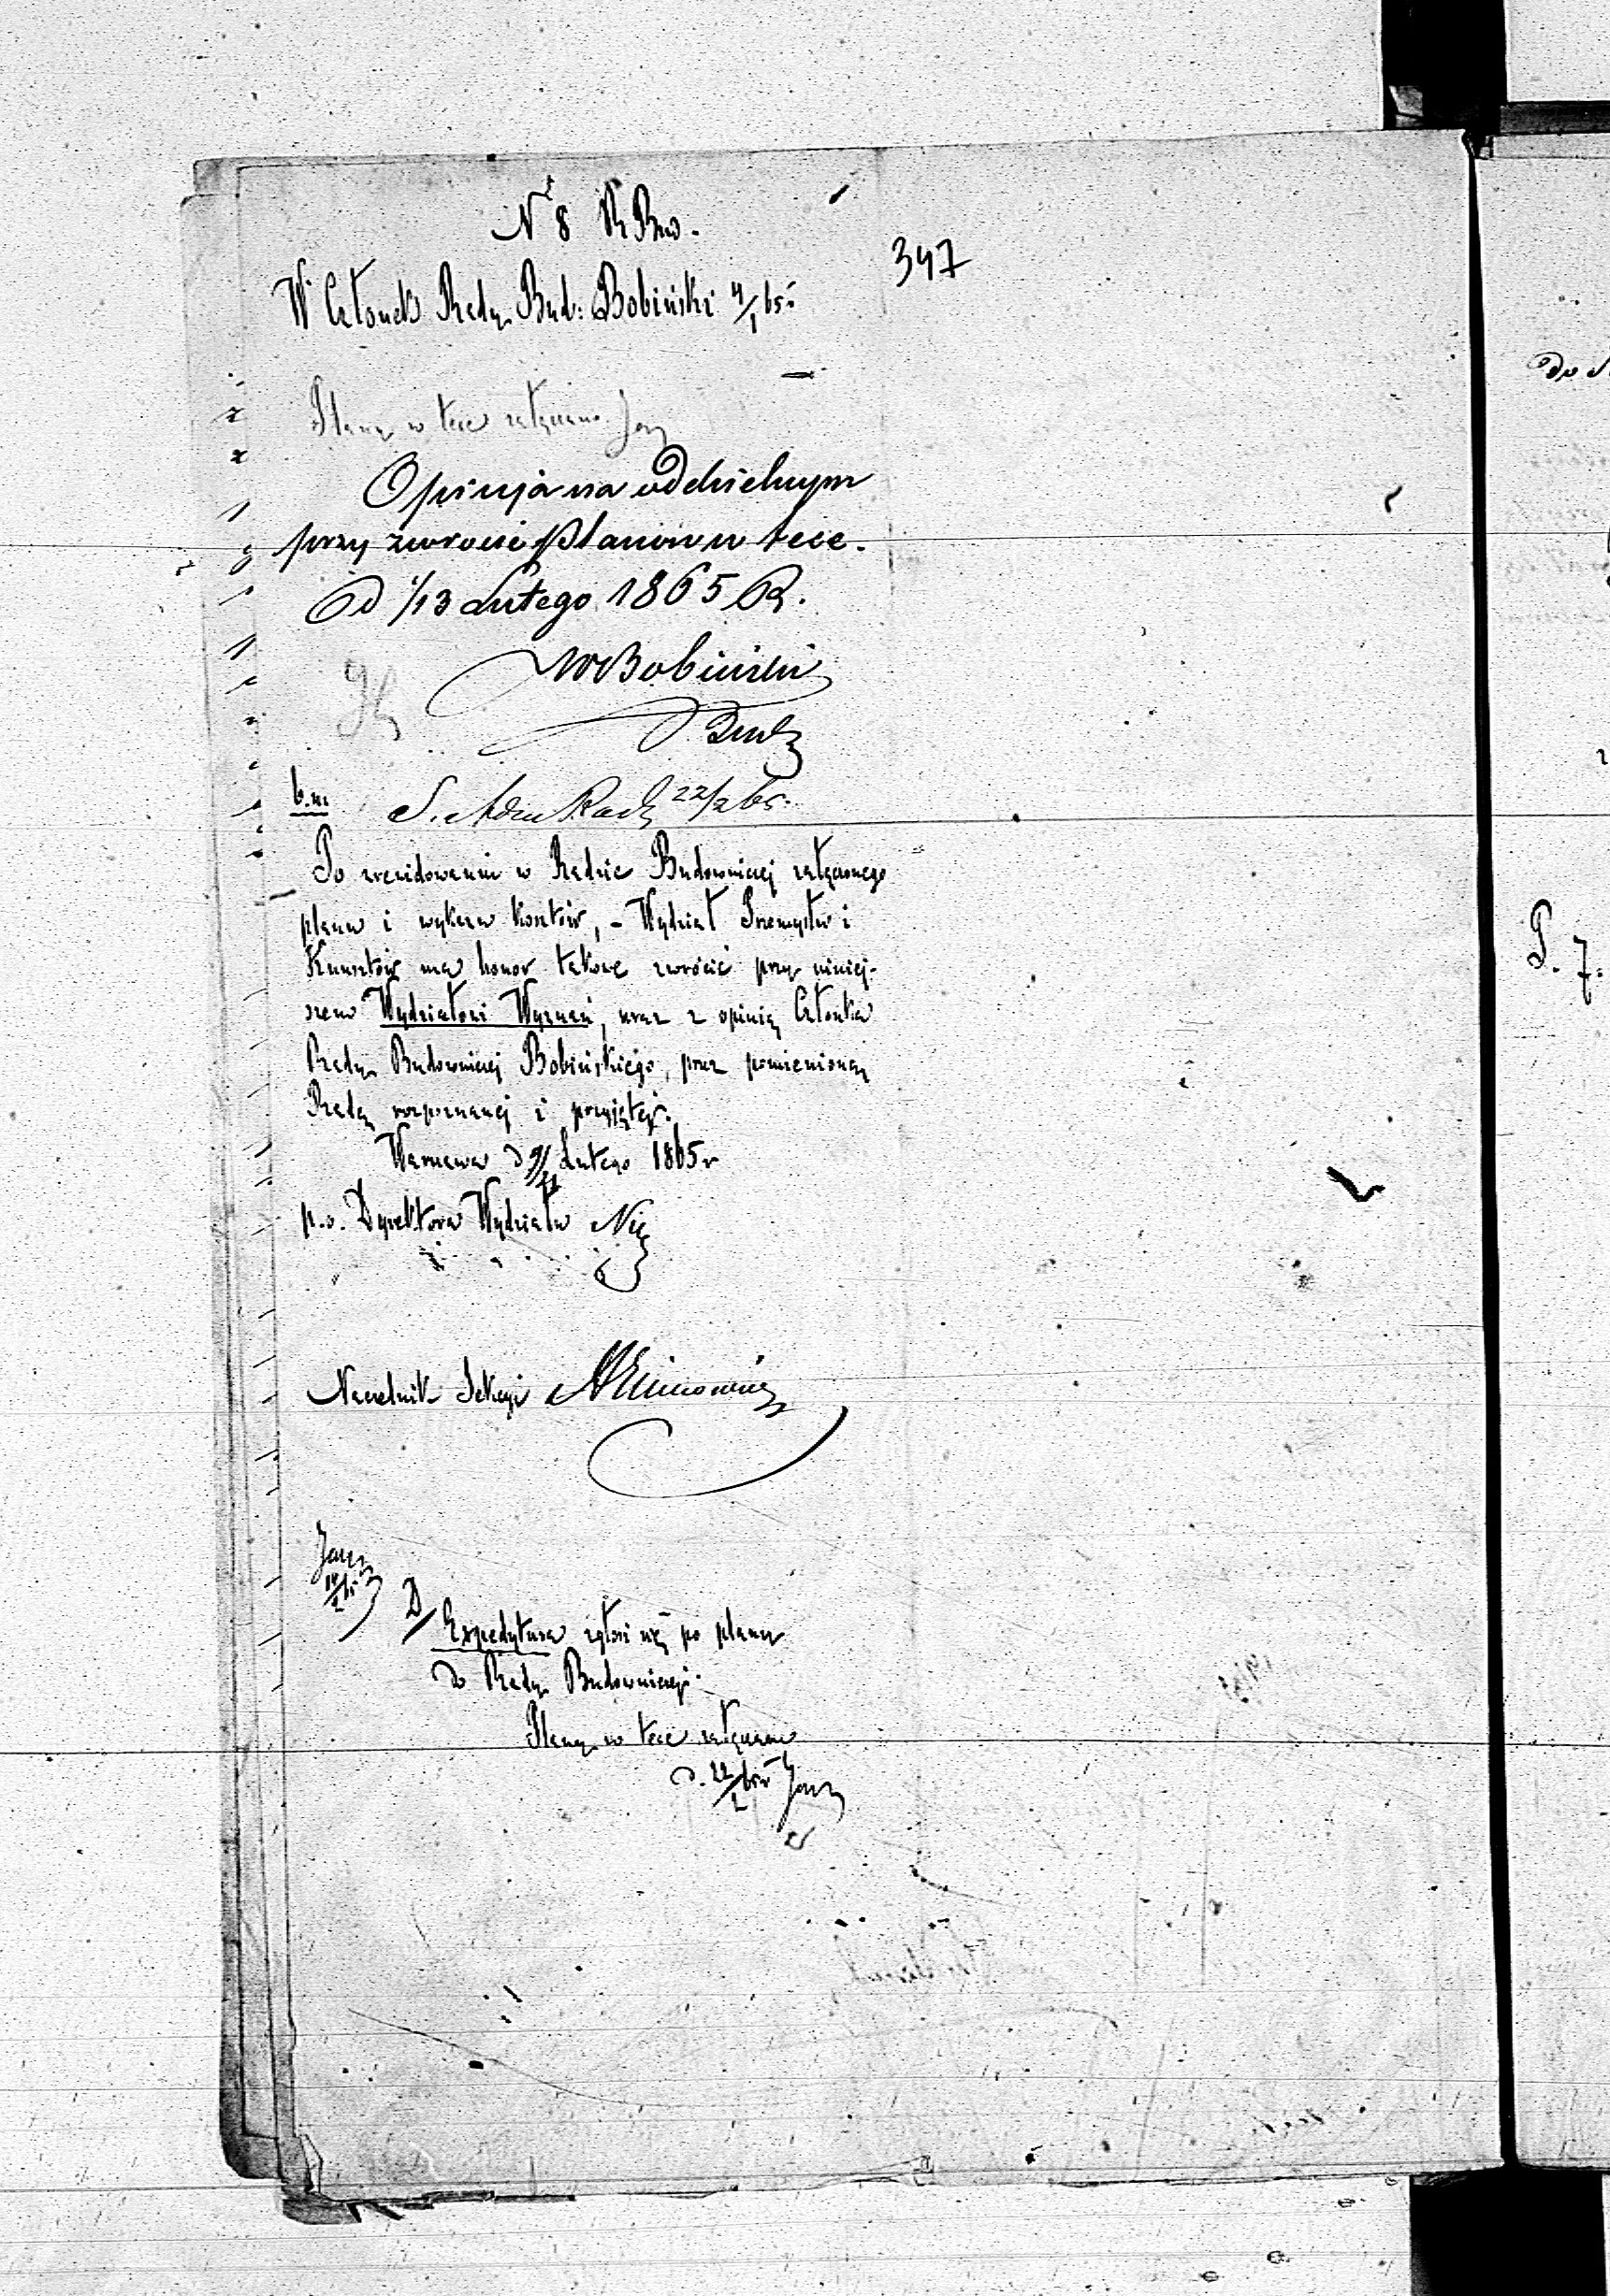 N 8 R Bud.
347
W Członek Rady Bud: Bobiński 4/1 65
Plany w tece załączone
Opinija na oddzielnym
przy zwrocie planów w tece.
D 1/13 Lutego 1865 R.
W Bobiński
b.m. 22/2 65.
Po zrewidowaniu w Radzie Budowniczej załączonego
planu i wykazu kosztów, - Wydział Przemysłu i
Kunsztów ma honor takowe zwrócić przy niniej-
szem Wydziałowi Wyznań, wraz z opinią Członka
Rady Budowniczej Bobińskiego, przez pomienioną
Radę rozpoznanej i przyjętej.
Warszawa d Lutego 1865 r
p.o. Dyrektora Wydziału
Naczelnik Sekcyi
D/
Expedytura zgłosi się po plany
do Rady Budowniczej.
Plany w tece załączone
d. 22/2 65 r
Do
P. 7.